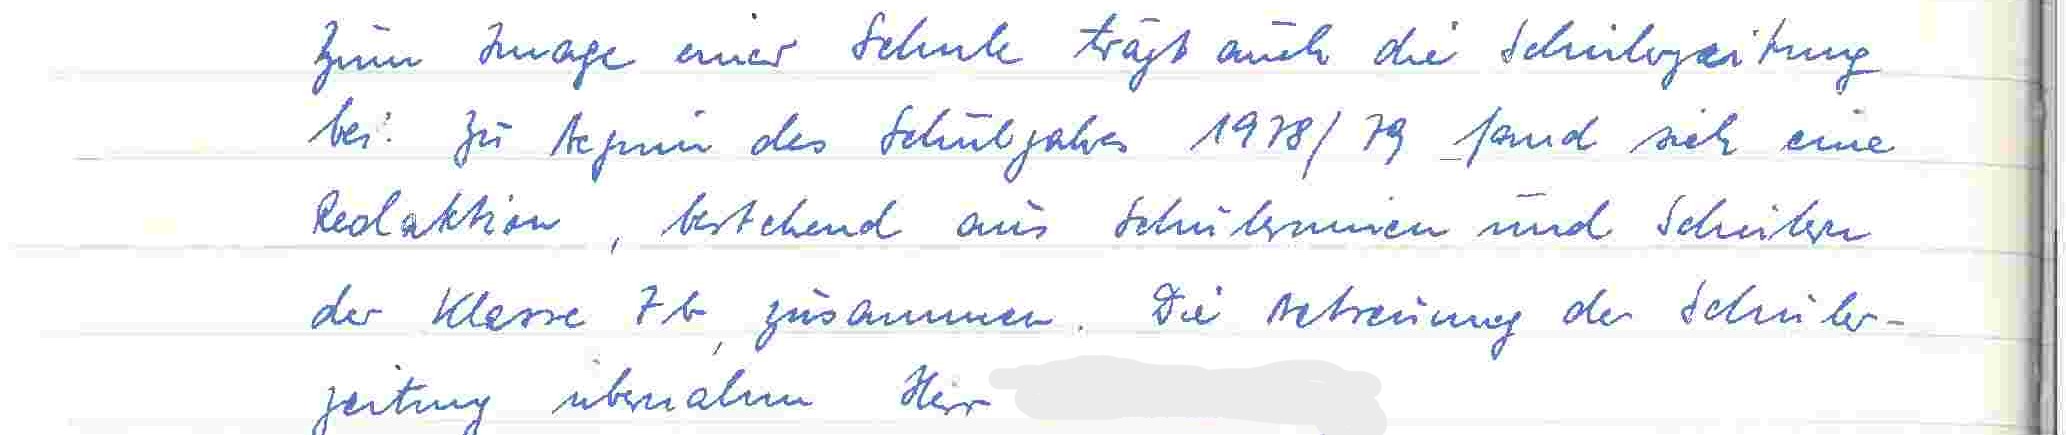 Zum Image einer Schule trägt auch die Schülerzeitung
bei. Zu Beginn des Schuljahres 1978/79 fand sich eine
Redaktion, bestehend aus Schülerinnen und Schülern
der Klasse 7b, zusammen. Die Betreuung der Schüler-
zeitung übernahm Herr